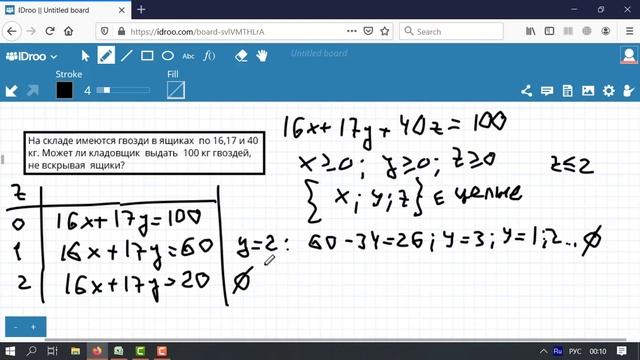 IDroo || Untitled board
https://idroo.com/board-svlVMTHLrA
IDROO
Untitled board
Stroke
Fill
4
16x+17y+40z=100
На складе имеются гвозди в ящиках по 16,17 и 40
кг. Может ли кладовщик выдать 100 кг гвоздей,
не вскрывая ящики?
x≥0; y≥0; z≥0 z≤2
{x; y; z} ∈ целые
z
0 16x+17y=100
1 16x+17y=60 y=2: 60-34=26; y=3; y=1;2... ∅
2 16x+17y=20 ∅
- +
Ru РУС 00:10